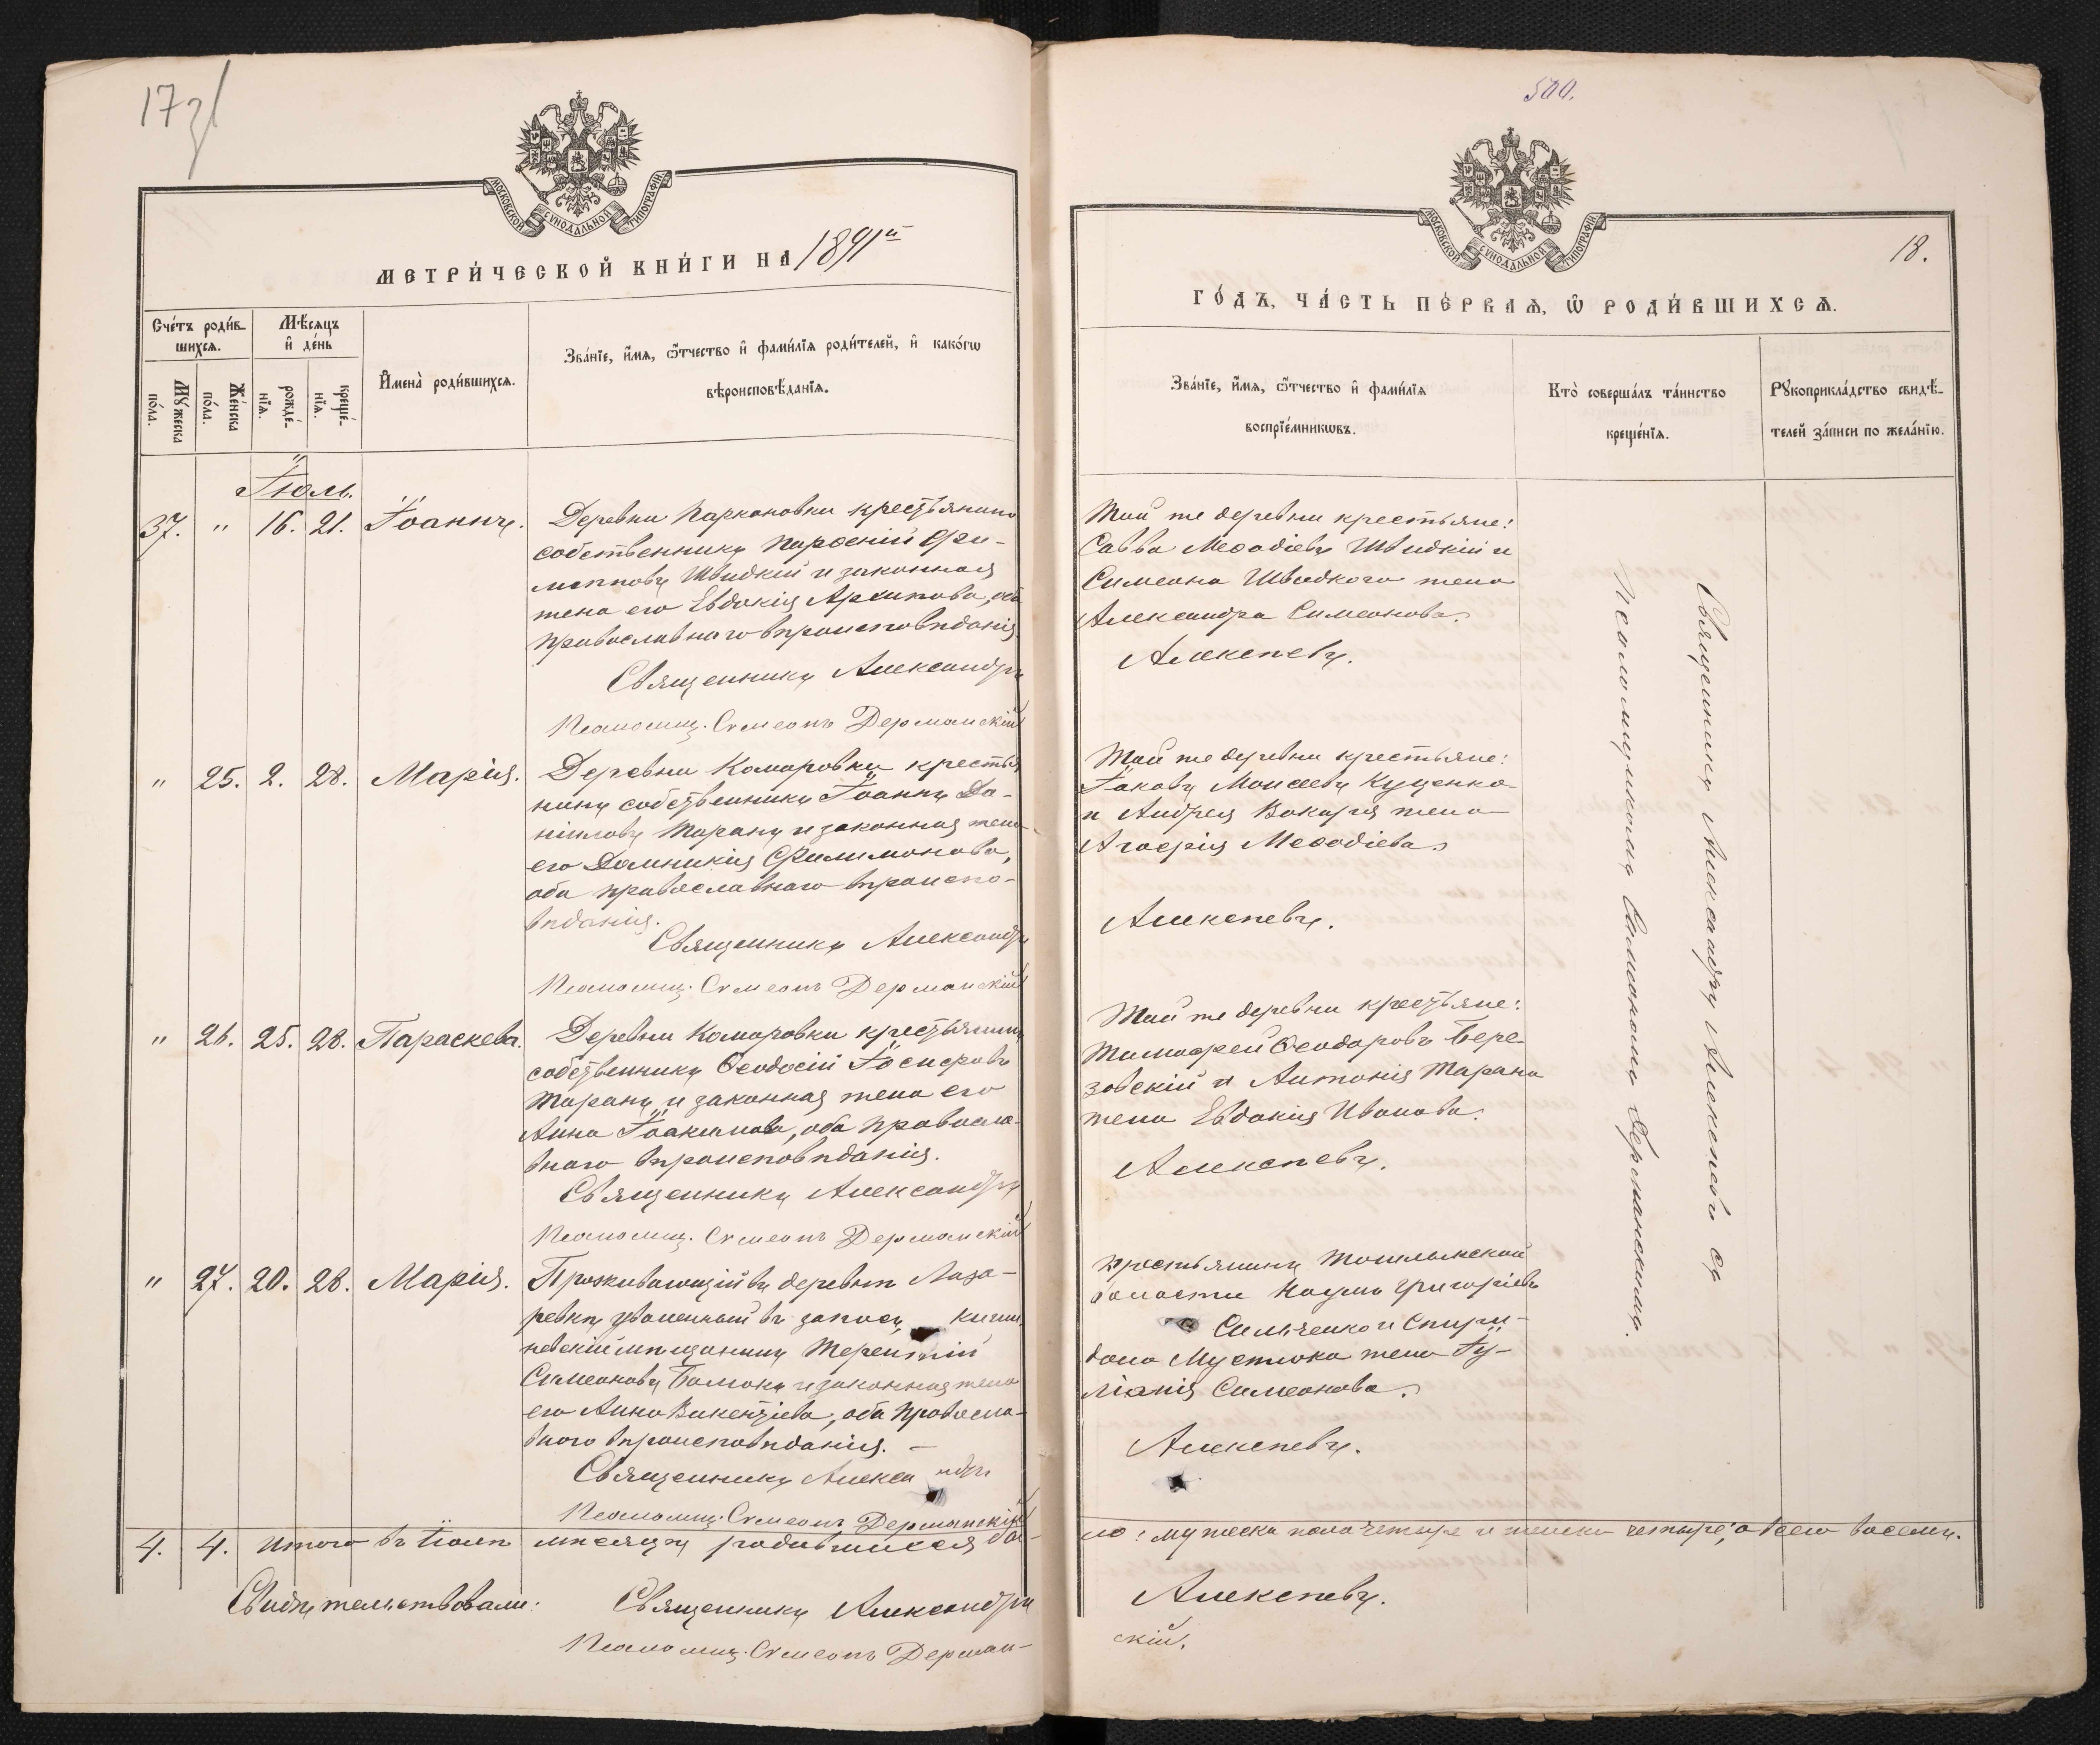 17
МОСКОВСКОЙ СѴНОДАЛЬНОЙ ТИПОГРАФІИ
МЕТРИ́ЧЕСКОЙ КНИ́ГИ НА 1891й
Сче́тъ роди́в-
шихсѧ.
Мѣ́сѧцъ
и҆ де́нь
Мꙋжеска
по́ла.
Же́нска
по́ла.
рожде́-
нїѧ.
креще́-
нїѧ.
И҆мена̀ роди́вшихсѧ.
Зва́нїе, и҆́мѧ, ѻ҆́тчество и҆ фамѝлїѧ роди́телей, и҆ како́гѡ
вѣроисповѣ́данїѧ.
Іюль.
37. " 16. 21. Іоаннъ.
Деревни Паркановки крестьянинъ
собственникъ Парѳеній Фи-
липповъ Швидкій и законная
жена его Евдокія Архипова, оба
православнаго вѣроисповѣданія.
Священникъ Александръ
Псаломщ. Симеонъ Дерманскій
" 25. 2. 28. Марія.
Деревни Комаровки крестья
нинъ собственникъ Іоаннъ Да-
ніиловъ Таранъ и законная жена
его Домникія Филимонова,
оба православнаго вѣроиспо-
вѣданія.
Священникъ Александръ
Псаломщ. Симеонъ Дерманскій
" 26. 25. 28. Параскева.
Деревни Комаровки крестьянинъ
собственникъ Ѳеодосій Іосифовъ
Таранъ и законная жена его
Анна Іоакимова, оба православ
внаго вѣроисповѣданія.
Священникъ Александръ
Псаломщ. Симеонъ Дерманскій
" 27. 20. 28. Марія.
Проживающій въ деревнѣ Лаза-
ревкѣ уволенный въ запасъ кишин
невскій мѣщанинъ Терентій
Симеоновъ и законная жена
его Анна Викентіева, оба правосла-
внаго вѣроисповѣданія. —
Священникъ Александръ
Псаломщ. Симеонъ Дерманскій
4. 4. Итого въ Іюлѣ мѣсяцѣ родившихся бы-
Свидѣтельствовали: Священникъ Александръ
Псаломщ. Симеонъ Дерман-
500.
МОСКОВСКОЙ СѴНОДАЛЬНОЙ ТИПОГРАФІИ
18.
ГО́ДЪ, ЧА́СТЬ ПЕ́РВАѦ, Ѡ҆ РОДИ́ВШИХСѦ.
Зва́нїе, и҆́мѧ, ѻ҆́тчество и҆ фамѝлїѧ
воспрїе́мникѡвъ.
Кто̀ соверша́лъ та́инство
креще́нїѧ.
Рꙋкоприкла́дство свидѣ́-
телей за́писи по жела́нїю.
Той же деревни крестьяне:
Савва Меѳодіевъ Швидкій и
Симеона Швидкого жена
Александра Симеонова.
Алексѣевъ.
Той же деревни крестьяне:
Іаковъ Моисеевъ Куценко
и Андрея Вокаря жена
Агафія Меѳодіева.
Алексѣевъ.
Той же деревни крестьяне:
Тимофей Ѳеодоровъ Бере-
зовскій и Антонія Тарана
жена Евдокія Иванова.
Алексѣевъ.
крестьянинъ
волости Наумъ Григоріевъ
Сильченко и Спири-
дона Мустока жена Іу-
ліанія Симеонова.
Алексѣевъ.
ло: мужеска пола четыре и женска четыре, а всего восемь.
Алексѣевъ.
скій.
Священникъ Александръ Алексѣевъ съ
Псаломщикомъ Симеономъ Дерманскимъ.